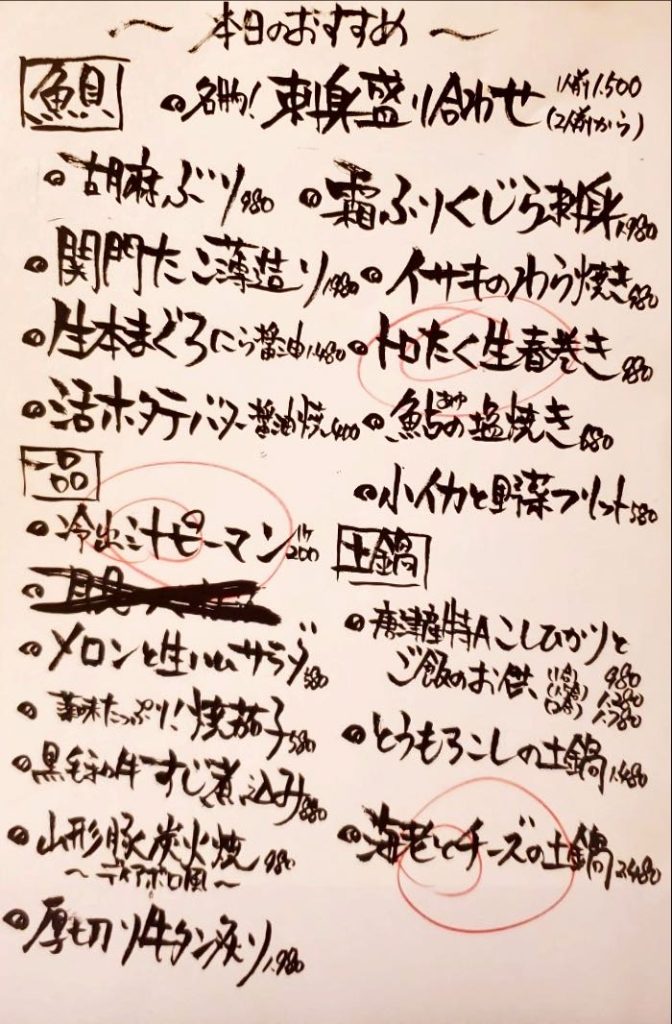 〜 本日のおすすめ 〜
魚貝
名物! 刺身盛り合わせ 1人前1.500
(2人前から)
胡麻ぶり 980
霜ふりくじら刺身 1.980
関門たこ薄造り 1.980
イサキのわら焼き 980
生本まぐろにら醤油 1.480
トロたく生春巻き 980
活ホタテバター醤油焼 400
鮎の塩焼き 680
あゆ
小イカと野菜フリット 580
一品
冷出汁ピーマン 1ヶ200
メロンと生ハムサラダ 580
薬味たっぷり! 焼茄子 580
黒毛和牛すじ煮込み 880
山形豚炭火焼 980
〜ディアボロ風〜
厚切り牛タン炙り 1.980
土鍋
唐津産特Aこしひかりと
ご飯のお供 (1合) 980
1.280
(2合) 1.780
とうもろこしの土鍋 1.480
海老とチーズの土鍋 2.480